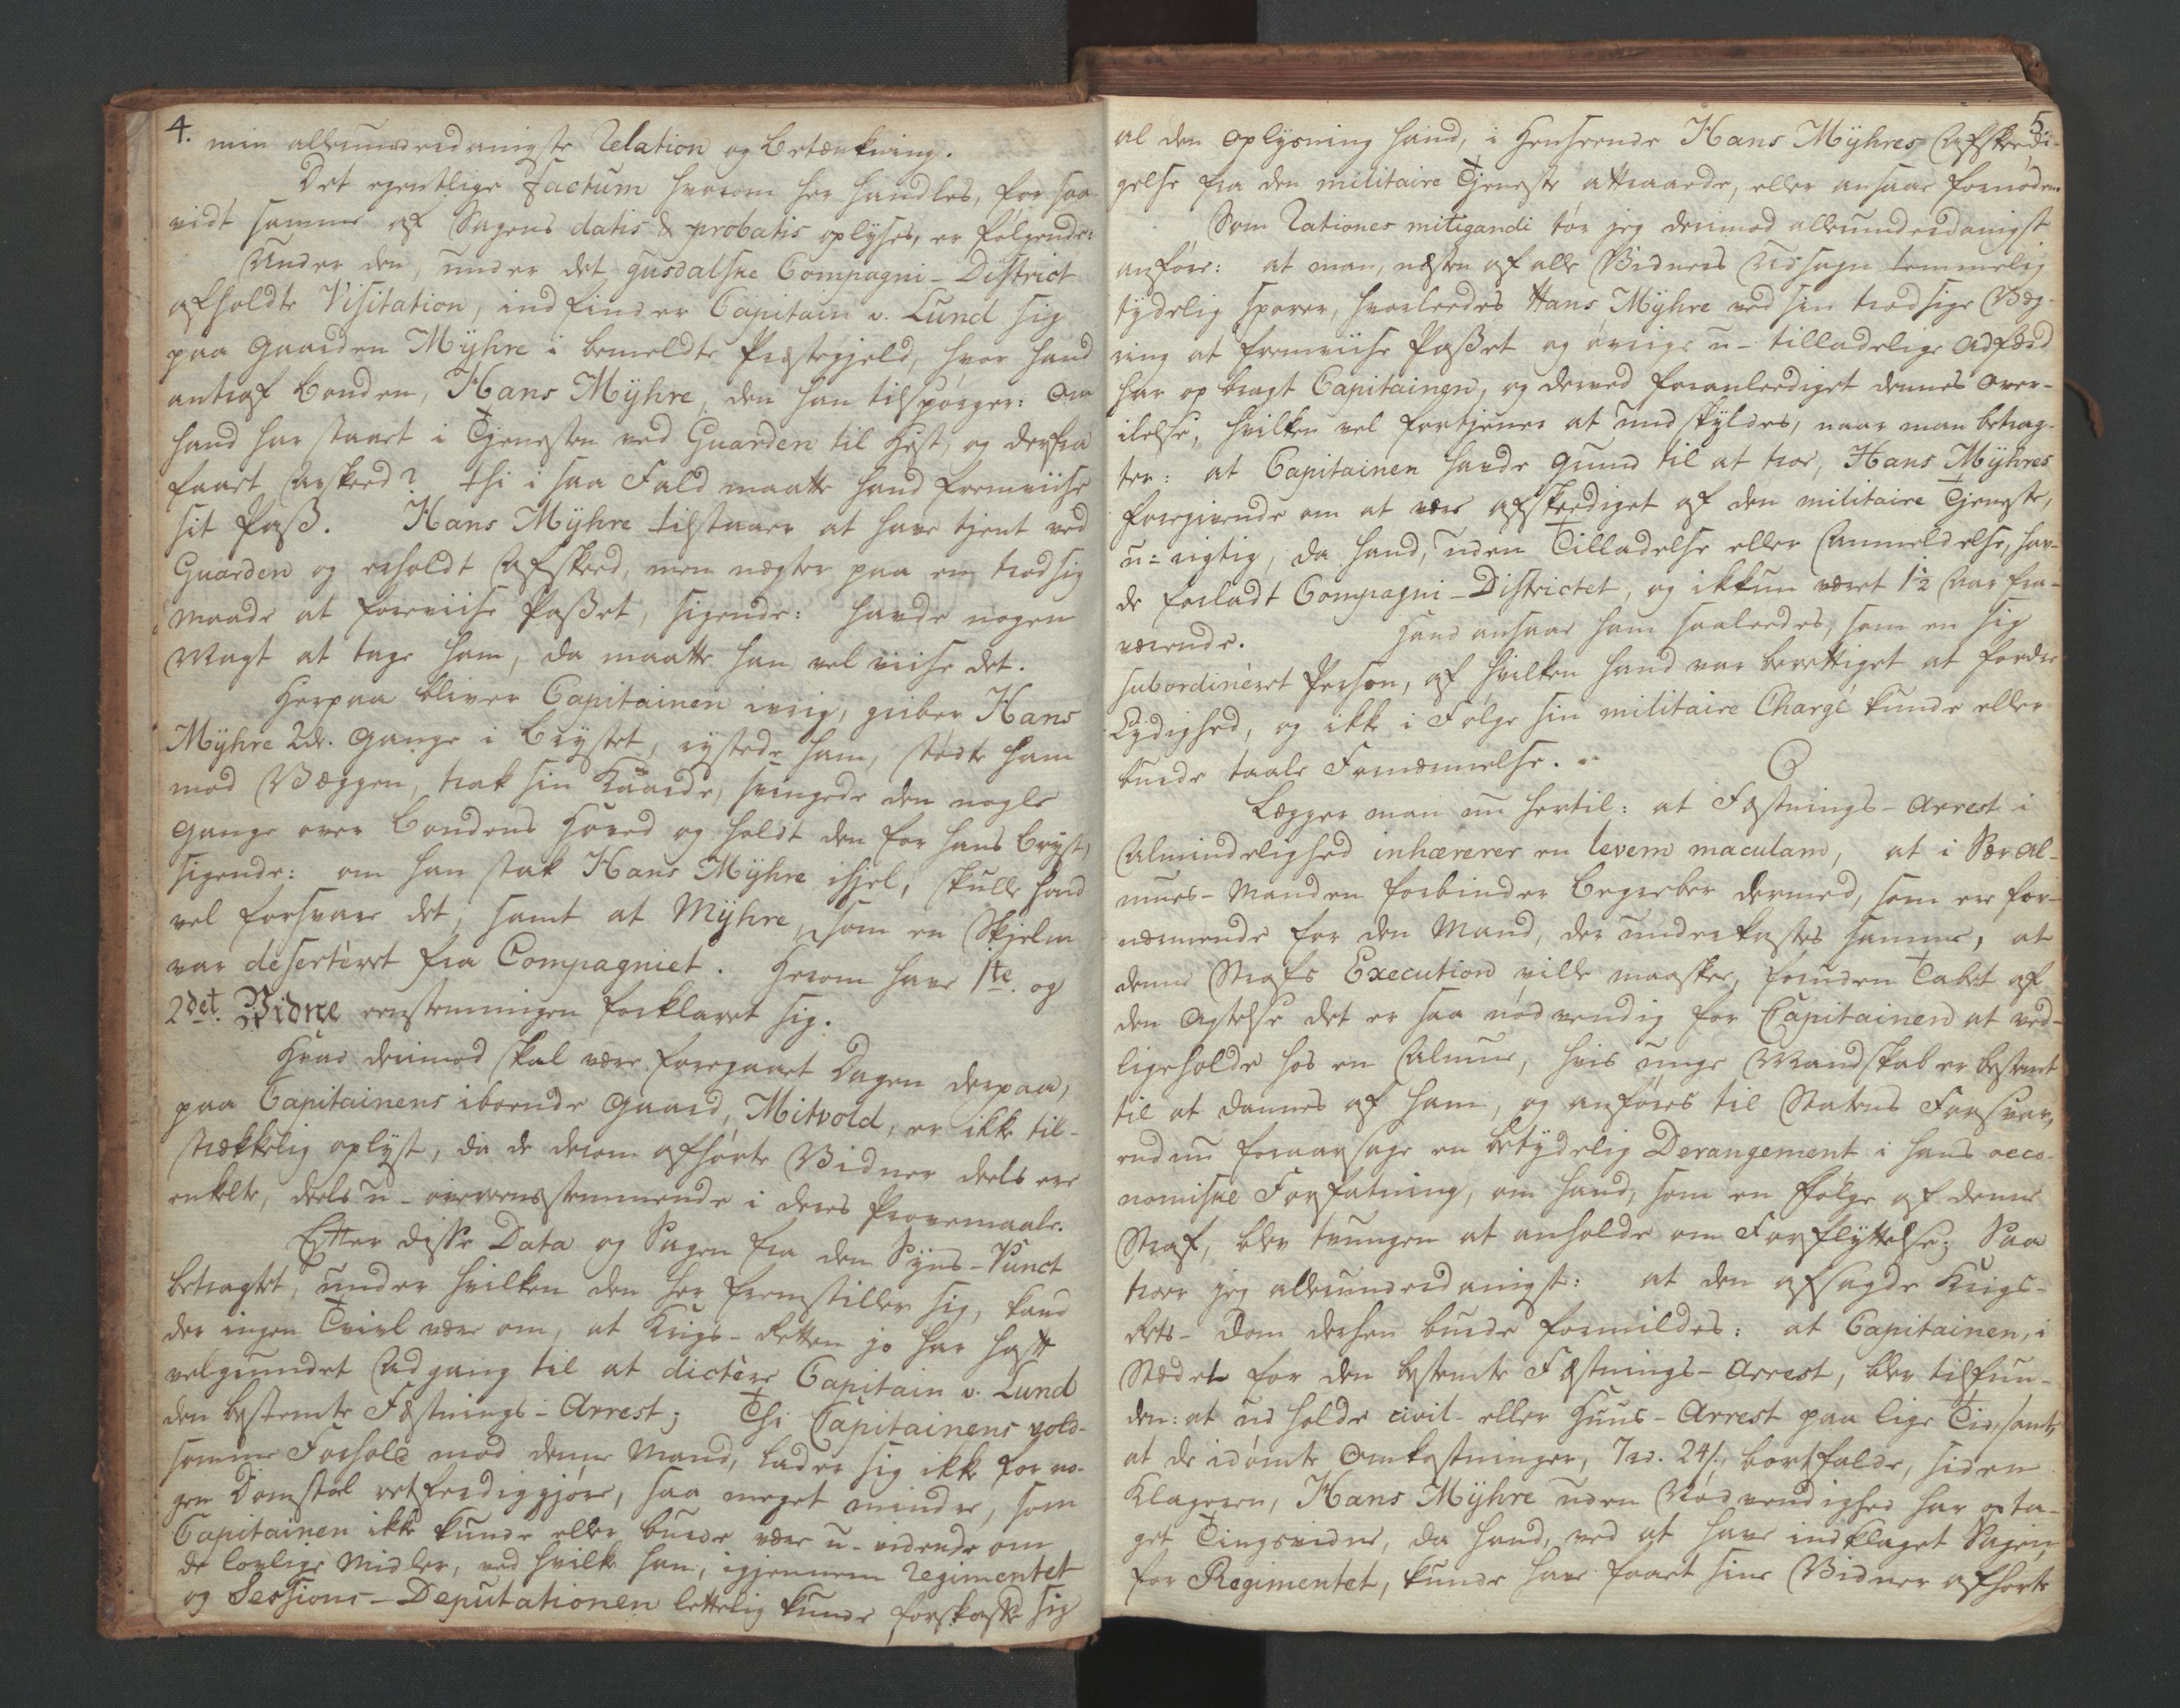 4.
min allerunderdanigste Relation og Betænkning.
Det egentlige Factum hvorom her handles, for saa
vidt samme af Sagens datis & probatis oplyses, er følgende:
Under den, under det Gusdalske Compagni-District
afholdte Visitation, indfinder Capitain v. Lund sig
paa Gaarden Mÿhre i bemeldte Præstegjeld, hvor hand
antraf Bonden, Hans Mÿhre, den han tilspørger: Om
hand har staaet i Tjenesten ved Guarden til Hest, og derfra
faaet Afskeed? thi i saa Fald maatte hand fremviise
sit Pass. Hans Mÿhre tilstaaer at have tjent ved
Guarden og erholdt Afskeed, men nægter paa en trodsig
Maade at foreviise Passet, sigende: havde nogen
Magt at tage ham, da maatte han vel viise det.
Herpaa bliver Capitainen ivrig, griber Hans
Mÿhre 2de. Gange i Brÿstet, rystede ham, stødte ham
mod Væggen, trak sin Kaarde, svingede den nogle
Gange over Bondens Hoved og holdt den for hans Bryst,
sigende: om han stak Hans Mÿhre ihjel, skulle hand
vel forsvare det, samt at Mÿhre, som en Skjelm
var deserteret fra Compagniet. Herom have 1te. og
2det. Vidne eenstemmigen forklaret sig.
Hvad derimod skal være foregaaet Dagen derpaa,
paa Capitainens iboende Gaard, Mitvold, er ikke til-
strækkelig oplyst, da de derom afhørte Vidner deels ere
enkelte, deels u-overeensstemmende i deres Provemaale.
Efter disse Data og Sagen fra den Syns-Punct
betragtet, under hvilken den her fremstiller sig, kand
der ingen Tvivl være om, at Krigs-Retten jo har haft
velgrundet Adgang til at dictere Capitain v. Lund
den bestemte Fæstnings-Arrest; Thi Capitainens vold-
somme Forhold mod denne Mand, lader sig ikke for no-
gen Domstol retfærdiggjøre, saa meget mindre, som
Capitainen ikke kunde eller burde være u-vidende om
de lovlige Midler, ved hvilke han, igjennem Regimentet
og Sessions-Deputationen lettelig kunde forskaffe sig
5.
al den Oplysning hand, i Henseende Hans Mÿhres Afskeedi-
gelse fra den militaire Tjeneste attraaede, eller ansaae fornøden.
Som Rationes mitigandi tør jeg derimod allerunderdanigst
anføre: at man, næsten af alle Vidners Udsagn temmelig
tydelig sporer, hvorledes Hans Mÿhre ved sin trodsige Væg-
ring at fremviise Passet og øvrige u-tilladelige Adfærd
har opbragt Capitainen, og derved foranlediget dennes Over-
ilelse, hvilken vel fortjener at undskyldes, naar man betrag-
ter: at Capitainen havde Grund til at troe, Hans Mÿhres
foregivende om at være afskeediget af den militaire Tjeneste,
u-rigtig, da hand, uden Tilladelse eller Anmeldelse, hav-
de forladt Compagni-Districtet, og ikkun været 1½ Aar fra-
værende. Hand ansaae ham saaledes, som en sig
subordineret Person, af hvilken hand var berettiget at fordre
Lydighed, og ikke i Følge sin militaire Chargé kunde eller
burde taale Fornærmelse.
Lægger man nu hertil: at Fæstnings-Arrest i
Almindelighed inhærerer en levem maculam, at i Sær Al-
mues-Manden forbinder Begreber dermed, som ere for-
nærmende for den Mand, der underkastes samme, at
denne Straffs Execution ville maaskee, foruden Tabet af
den Agtelse det er saa nødvendig for Capitainen at ved-
ligeholde hos en Almue, hvis unge Mandskab er bestemt
til at dannes af ham, og anføres til Statens Forsvar,
endnu foraarsage en betydelig Derangement i hans oeco-
nomiske Forfatning, om hand, som en Følge af denne
Straf, blev tvungen at anholde om Forflyttelse; Saa
troer jeg allerunderdanigst: at den afsagde Krigs-
Rets-Dom derhen burde formildes: at Capitainen, i
Stædet for den bestemte Fæstnings-Arrest, blev tilfun-
den: at udholde civil- eller Huus-Arrest paa lige Tid, samt
at de idømte Omkostninger, 7rd. 24s., bortfalde, siden
Klageren, Hans Mÿhre uden Nødvendighed har opta-
get Tingsvidne, da hand, ved at have indklaget Sagen
for Regimentet, kunde have faaet sine Vidner afhørte